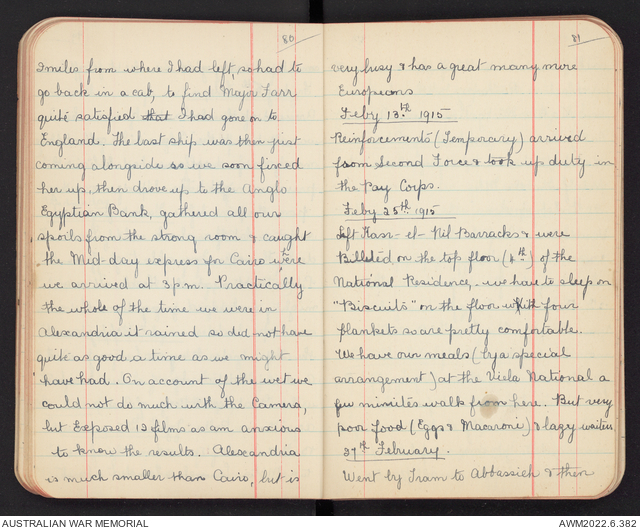 80
2 miles from where I had left, so had to
go back in a cab, to find Major Farr
quite satisfied that I had gone on to
England. The last ship was then just
coming alongside so we soon fixed
her up, then drove up to the Anglo
Egyptian Bank, gathered all our
spoils from the strong room & caught
the Mid-day express for Cairo wh're
we arrived at 3 pm. Practically
the whole of the time we were in
Alexandria it rained so did not have
quite as good a time as we might
have had. On account of the wet we
could not do much with the Camera,
but Exposed 12 films so am anxious
to know the results. Alexandria
is much smaller than Cairo, but is
81
very busy & has a great many more
Europeans
Feby 13th 1915
Reinforcements (Temporary) arrived
from Second Force & took up duty in
the Pay Corps.
Feby 25th 1915
Left Kasr-el-Nil Barracks & were
Billeted on the top floor (4th) of the
National Residence, we have to sleep on
"Biscuits" on the floor with four
blankets so are pretty comfortable.
We have our meals (by a special
arrangement) at the National a
few minutes walk from here. But very
poor food (Eggs & Macaroni) & lazy waiters
27th February.
Went by Tram to Abbassieh & then
AUSTRALIAN WAR MEMORIAL
AWM2022.6.382